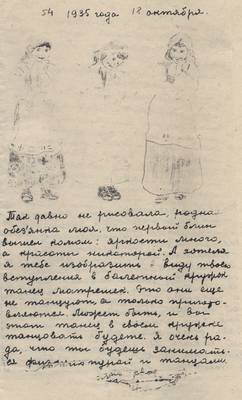 54 1935 года 12 октября.
Так давно не рисовала, родная
обезьянка моя, что первый блин
вышел комом: яркости много,
а красоты никоторой. А хотела
я тебе изобразить в виду твоего
вступления в балетный кружок
танец матрешек. Это они еще
не танцуют, а только приготов-
ляются. Может быть, и вы
этот танец в своем кружке
танцовать будете. Я очень ра-
да, что ты будешь занимать-
ся физкультурой и танцами.